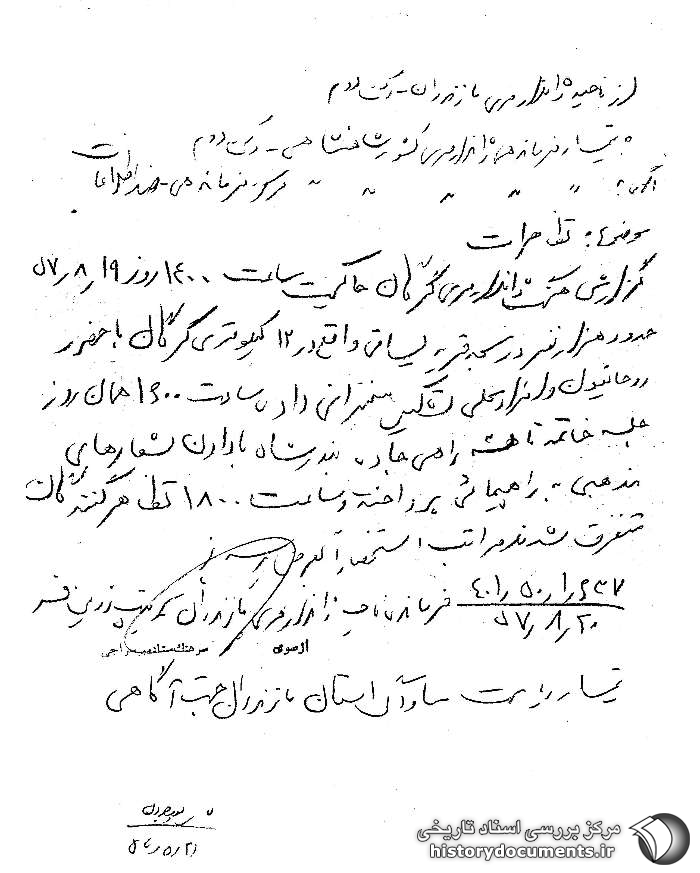 از ناحیه ژاندارمری مازندران - رکن دوم
به تیمسار فرماندهی ژاندارمری کشور شاهنشاهی - رکن دوم
آگهی: " " " " مرکز فرماندهی - ضد اطلاعات
موضوع: تظاهرات
گزارش هنگ ژاندارمری گرگان حاکیست ساعت ۱۴۰۰ روز ۱۹ر۸ر۵۷
حدود هزار نفر در مسجد قریه لیسانی واقع در ۱۲ کیلومتری گرگان با حضور
روحانیون و افراد محلی تشکیل سخنرانی داده ساعت ۱۶۰۰ همان روز
جلسه خاتمه یافته راهی جاده بندرشاه با دادن شعارهای
مذهبی به راهپیمائی پرداخته و ساعت ۱۸۰۰ تظاهرکنندگان
متفرق شدند مراتب استحضاراً بعرض میرسد
فرمانده ناحیه ژاندارمری مازندران سرتیپ زرین‌فر
۴۰۱ر۵۰ر۱ر۶۳۷
۵۷ر۸ر۲۰
از سوی سرهنگ ستاد معراجی
تیمسار ریاست ساواک استان مازندران جهت آگاهی
مرکز بررسی اسناد تاریخی
historydocuments.ir